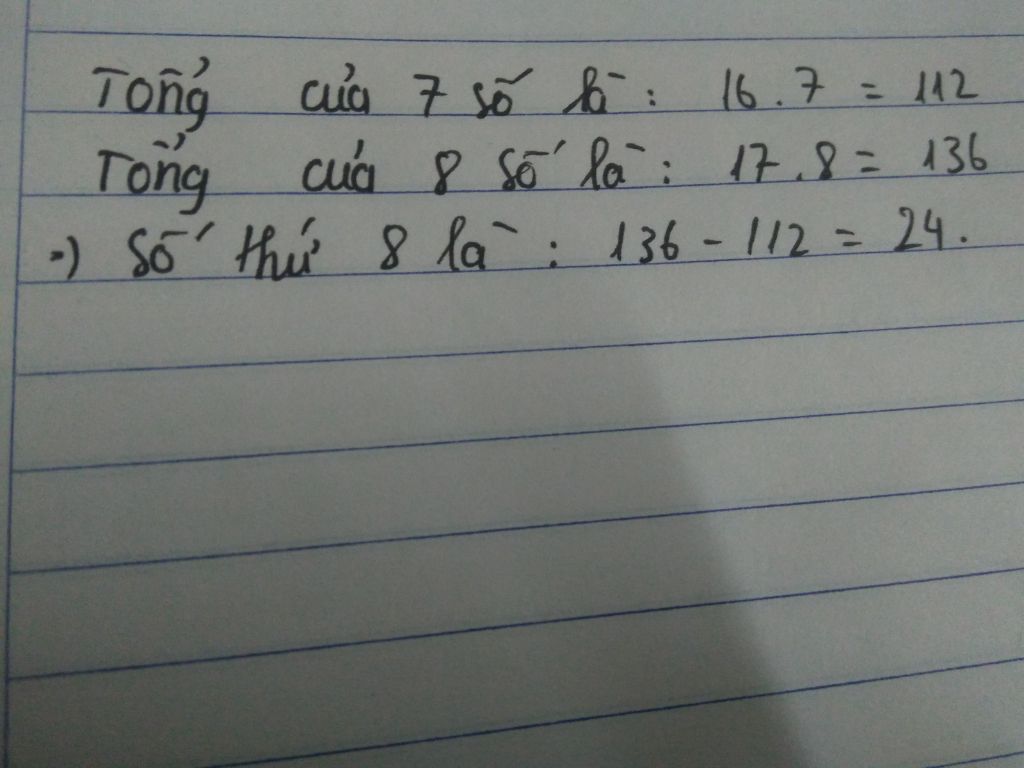 Tổng của 7 số là : 16 . 7 = 112
Tổng của 8 số là : 17 . 8 = 136
=) Số thứ 8 là : 136 - 112 = 24.